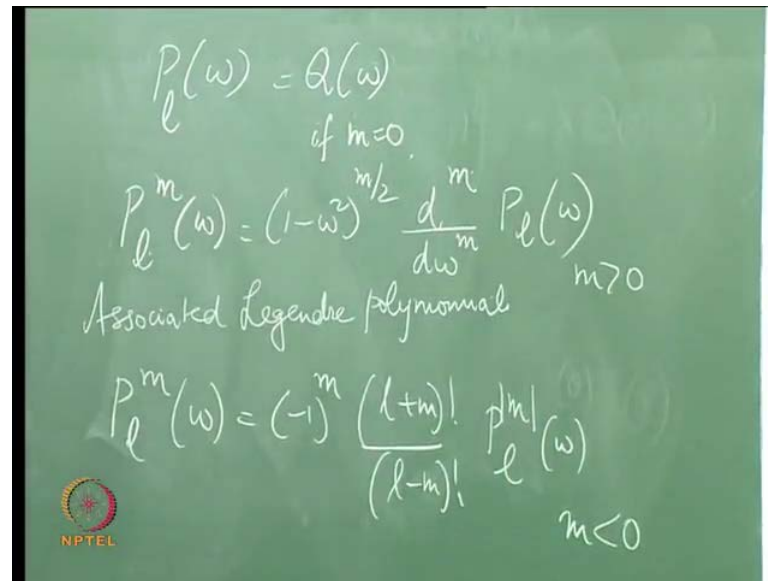 P_l(ω) = Q(ω)
if m=0.
P_l^m(ω) = (1-ω²)^{m/2} d^m/dω^m P_l(ω)
m>0
Associated Legendre polynomial
P_l^m(ω) = (-1)^m (l+m)!/(l-m)! P_l^{|m|}(ω)
m<0
NPTEL